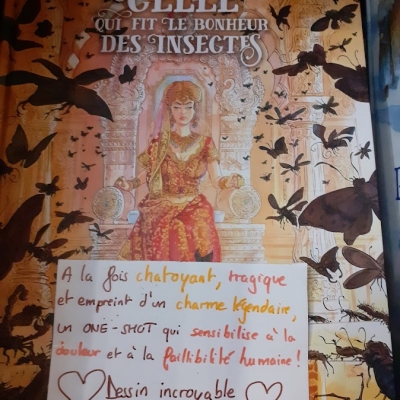 CELLE
QUI FIT LE BONHEUR
DES INSECTES
A la fois chatoyant, tragique
et empreint d'un charme légendaire,
un ONE-SHOT qui sensibilise à la
douleur et à la faillibilité humaine !
Dessin incroyable